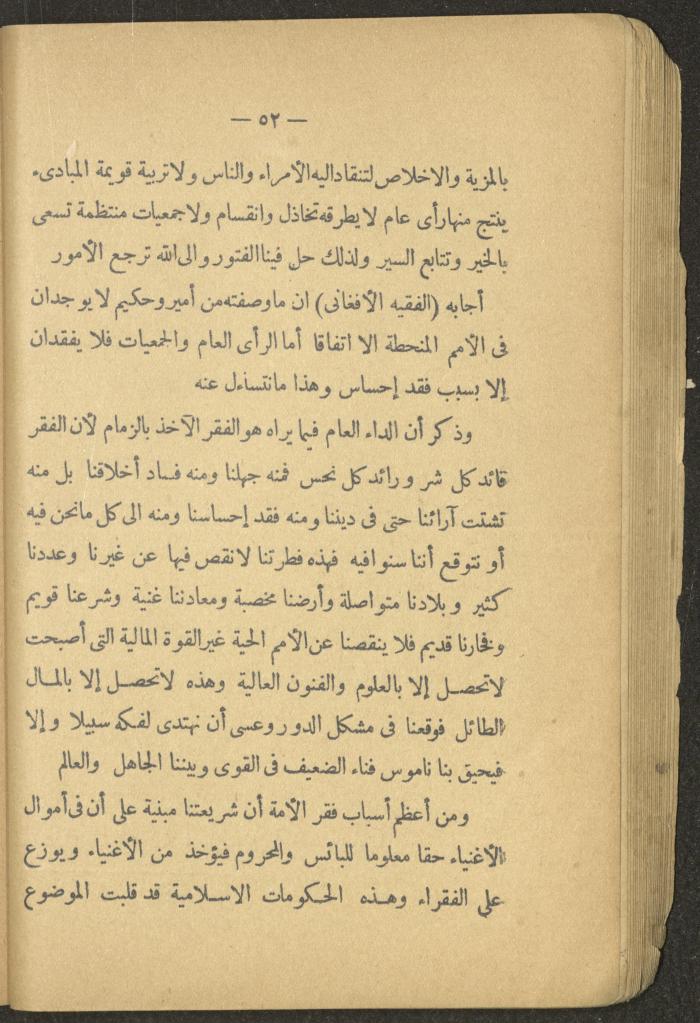 — ٥٢ —
بالمزية والاخلاص لتنقاد اليه الأمراء والناس ولا تربية قويمة المبادىء
ينتج منها رأى عام لا يطرقه تخاذل وانقسام ولا جمعيات منتظمة تسعى
بالخير وتتابع السير ولذلك حل فينا الفتور والى الله ترجع الأمور
أجابه (الفقيه الأفغانى) ان ما وصفته من أمير وحكيم لا يوجدان
فى الأمم المنحطة الا اتفاقا أما الرأى العام والجمعيات فلا يفقدان
إلا بسبب فقد إحساس وهذا ما نتساءل عنه
وذكر أن الداء العام فيما يراه هو الفقر الآخذ بالزمام لأن الفقر
قائد كل شر ورائد كل نحس فمنه جهلنا ومنه فساد أخلاقنا بل منه
تشتت آرائنا حتى فى ديننا ومنه فقد إحساسنا ومنه الى كل ما نحن فيه
أو نتوقع أننا سنوافيه فهذه فطرتنا لا نقص فيها عن غيرنا وعددنا
كثير وبلادنا متواصلة وأرضنا مخصبة ومعادننا غنية وشرعنا قويم
وفخارنا قديم فلا ينقصنا عن الأمم الحية غير القوة المالية التى أصبحت
لا تحصل إلا بالعلوم والفنون العالية وهذه لا تحصل إلا بالمال
الطائل فوقعنا فى مشكل الدور وعسى أن نهتدى لفكه سبيلا وإلا
فيحيق بنا ناموس فناء الضعيف فى القوى وبيننا الجاهل والعالم
ومن أعظم أسباب فقر الأمة أن شريعتنا مبنية على أن فى أموال
الأغنياء حقا معلوما للبائس والمحروم فيؤخذ من الأغنياء ويوزع
على الفقراء وهذه الحكومات الاسلامية قد قلبت الموضوع